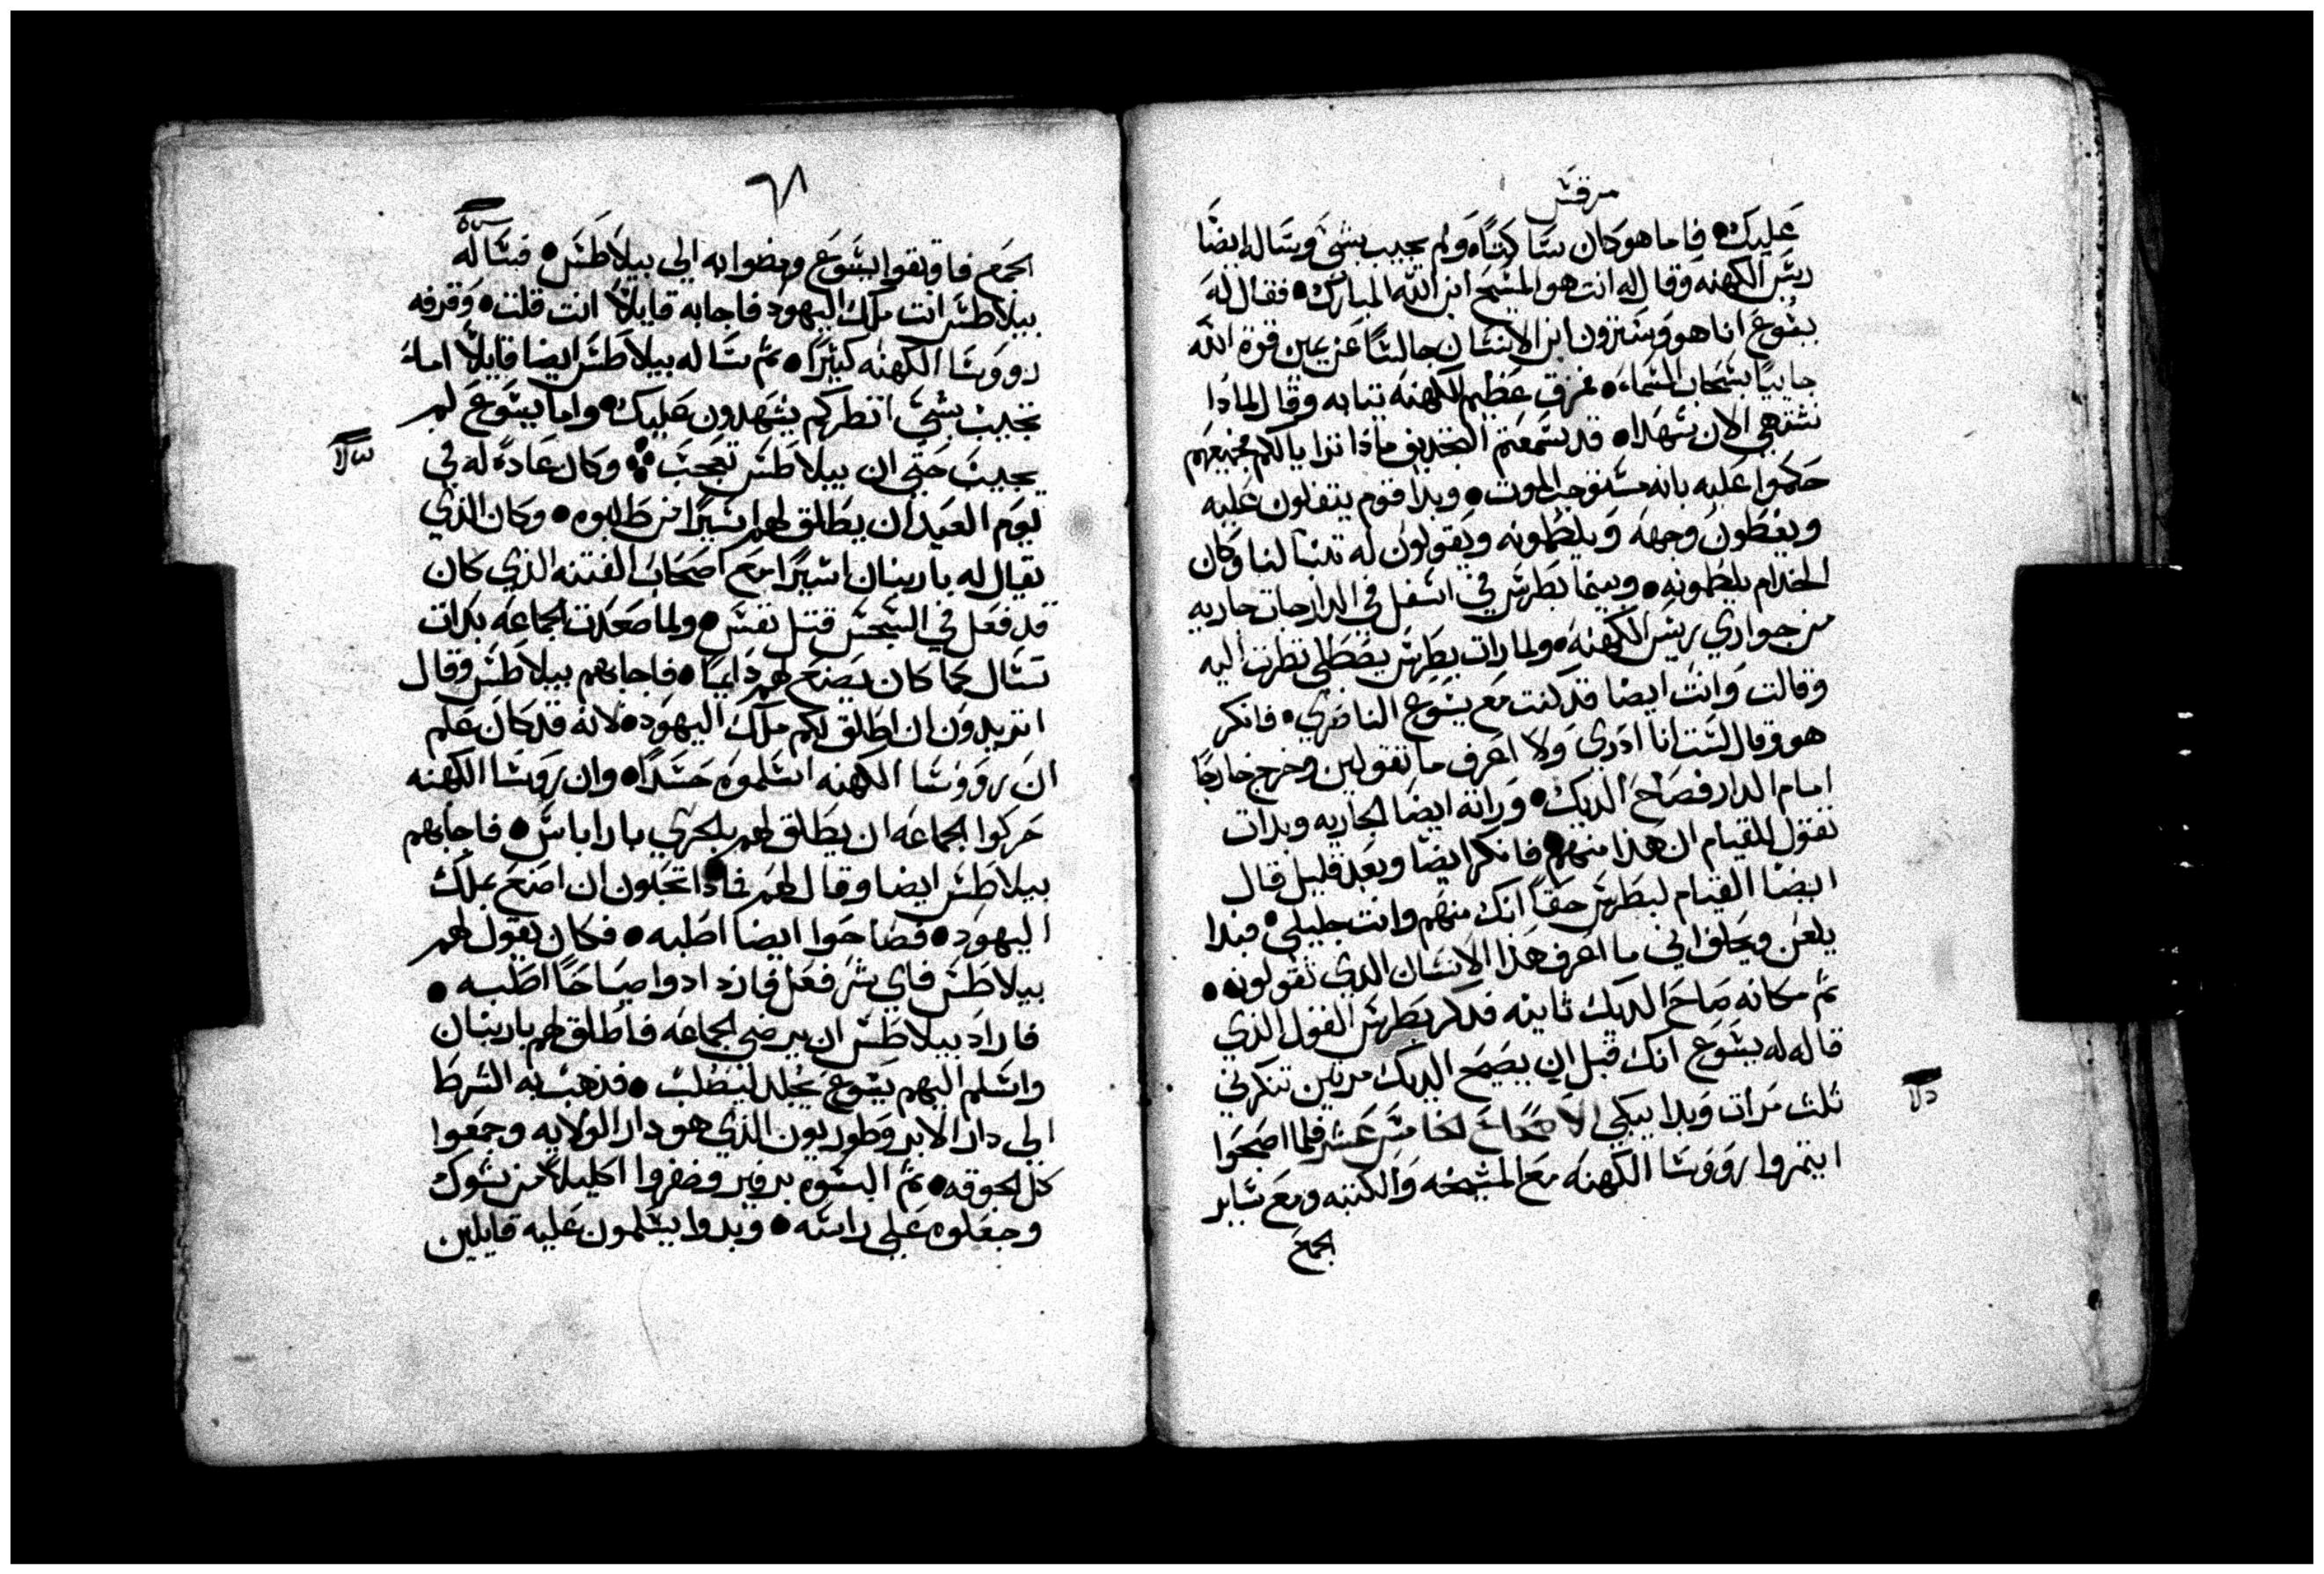 مرقس
عليك • فاما هو كان ساكتاً • ولم يجيب بشي وساله ايضا
ريس الكهنه وقال له انت هو المسيح ابن الله المبارك • فقال له
يسوع انا هو وسترون ابن الانسان جالسًا عن يمين قوة الله
جاييًا بسحاب السماء • فمزق عظيم الكهنه ثيابه وقال لماذا
نشتهي الان شهدا • قد سمعتم التجديف ماذا ترا يالكم فجميعهم
حكموا عليه بانه مستوجب الموت • وبدا قوم يتفلون عليه
ويغطون وجهه ويلطمونه ويقولون له تنبا لنا وكان
الخدام يلطمونه • وبينما بطرس في اسفل في الدار جات جاريه
من جواري ريس الكهنه • ولما رات بطرس يصطلي نظرت اليه
وقالت وانت ايضا قد كنت مع يسوع الناصري • فانكر
هو وقال لست انا ادري ولا اعرف ما تقولين وخرج خارجًا
امام الدار فصاح الديك • ورانه ايضا الجاريه وبدات
تقول للقيام ان هذا منهم • فانكر ايضا وبعد قليل قال
ايضا القيام لبطرس حقاً انك منهم وانت جليلي • فبدا
يلعن ويحلف اني ما اعرف هذا الانسان الذي تقولونه •
ثم مكانه صاح الديك ثانيه فدكر بطرس القول الذي
قاله له يسوع انك قبل ان يصيح الديك مرتين تنكرني
ثلث مرات وبدا يبكي الاصحاح الخامس عشر فلما اصبحوا
ايتمروا رووسا الكهنه مع المشيخه والكتبه ومع ساير
الجمع
٦٨
الجمع فاوثقوا يسوع ومضوا به الي بيلاطس • فساله
بيلاطس انت ملك اليهود فاجابه قايلاً انت قلت • وقرفه
رووسا الكهنه كثيرًا • ثم ساله بيلاطس ايضا قايلاً اما
تجيب بشي انظر كم يشهدون عليك • واما يسوع لم
يجيب حتي ان بيلاطس تعجب • وكان عادة له في
يوم العيد ان يطلق لهم اسيرًا من طلبوه • وكان الذي
يقال له باربنان اسيرًا مع اصحاب الفتنه الذي كان
قد فعل في السجس قتل نفس • ولما صعدت الجماعه بدات
تسال كما كان يصنع لهم دايمًا • فاجابهم بيلاطس وقال
اتريدون ان اطلق لكم ملك اليهود • لانه قد كان علم
ان رووسا الكهنه اسلموه حسدًا • وان رووسا الكهنه
حركوا الجماعه ان يطلق لهم بلحري باراباس • فاجابهم
بيلاطس ايضا وقال لهم فماذا تحبون ان اصنع بملك
اليهود • فصاحوا ايضا اصلبه • فكان يقول لهم
بيلاطس فاي شر فعل فازدادوا صياحًا اصلبه •
فاراد بيلاطس ان يرضي الجماعه فاطلق لهم باربنان
واسلم اليهم يسوع يجلد ليصلب • فذهب به الشرط
الي دار الابروطوريون الذي هو دار الولايه وجمعوا
كل الجوقه • ثم البسوه برفير وضفروا اكليلاً من شوك
وجعلوه علي راسه • وبدوا يسلمون عليه قايلين